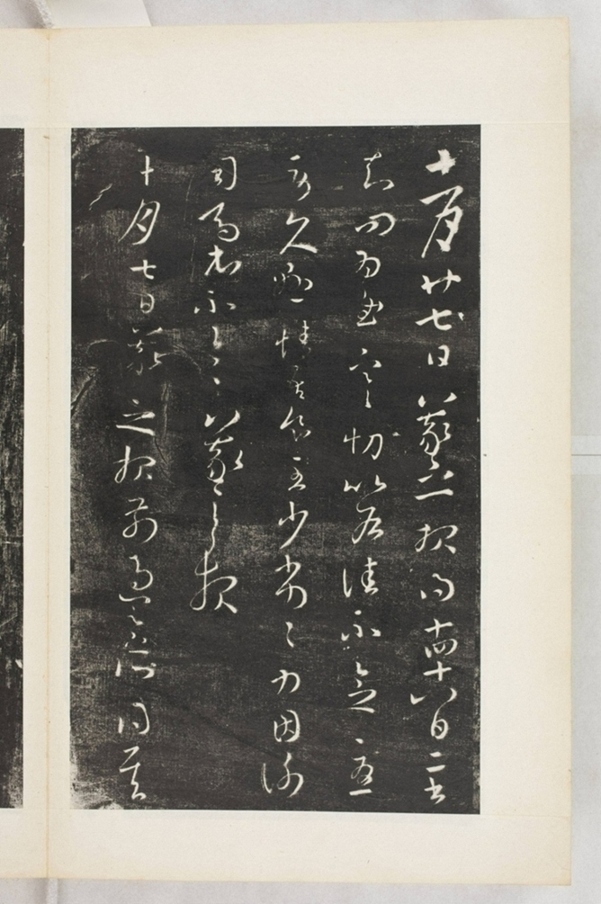 十一月廿七日羲之報得十四十八日二書
知問為慰寒切比各佳不念憂
勞久懸情吾食至少劣々力因謝
司馬書不一一羲之報
十月七日羲之報前過